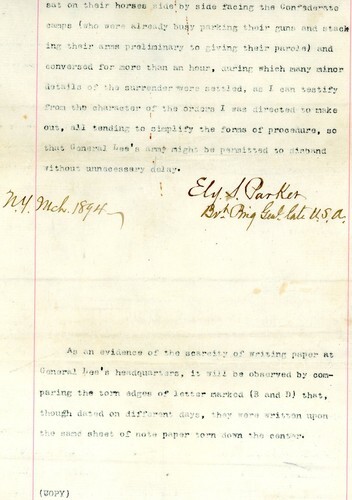 sat on their horses side by side facing the Confederate
camps (who were already busy parking their guns and stack
ing their arms preliminary to giving their parole) and
conversed for more than an hour, during which many minor
details of the surrender were settled, as I can testify
from the character of the orders I was directed to make
out, all tending to simplify the forms of procedure, so
that General Lee's army might be permitted to disband
without unnecessary delay.
Ely S. Parker
Bvt Brig Genl. late U.S.A.
N.Y. Mch. 1894
As an evidence of the scarcity of writing paper at
General Lee's headquarters, it will be observed by com-
paring the torn edges of letter marked (B and D) that,
though dated on different days, they were written upon
the same sheet of note paper torn down the center.
(COPY)